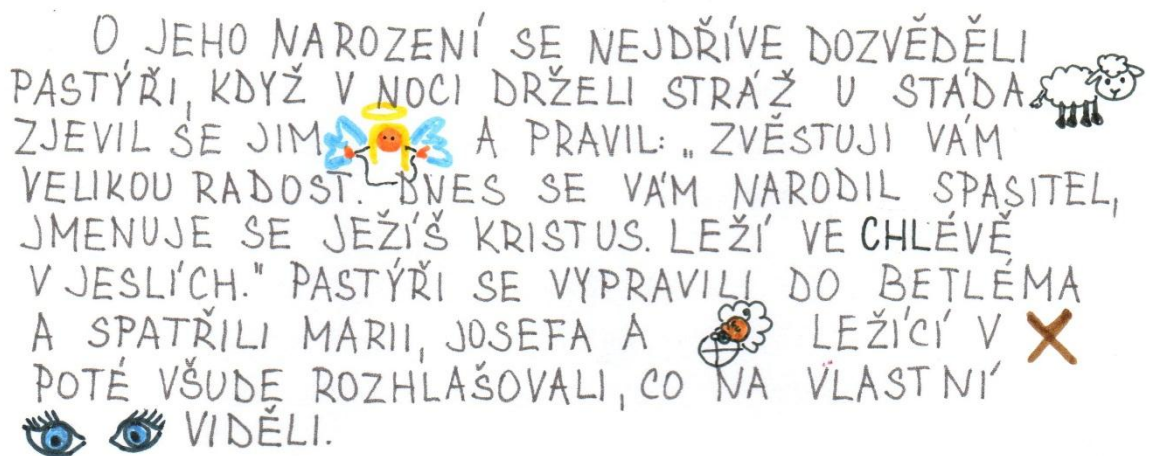 O JEHO NAROZENÍ SE NEJDŘÍVE DOZVĚDĚLI
PASTÝŘI, KDYŽ V NOCI DRŽELI STRÁŽ U STÁDA
ZJEVIL SE JIM A PRAVIL: „ZVĚSTUJI VÁM
VELIKOU RADOST. DNES SE VÁM NARODIL SPASITEL,
JMENUJE SE JEŽÍŠ KRISTUS. LEŽÍ VE CHLÉVĚ
V JESLÍCH." PASTÝŘI SE VYPRAVILI DO BETLÉMA
A SPATŘILI MARII, JOSEFA A LEŽÍCÍ V
POTÉ VŠUDE ROZHLAŠOVALI, CO NA VLASTNÍ
VIDĚLI.